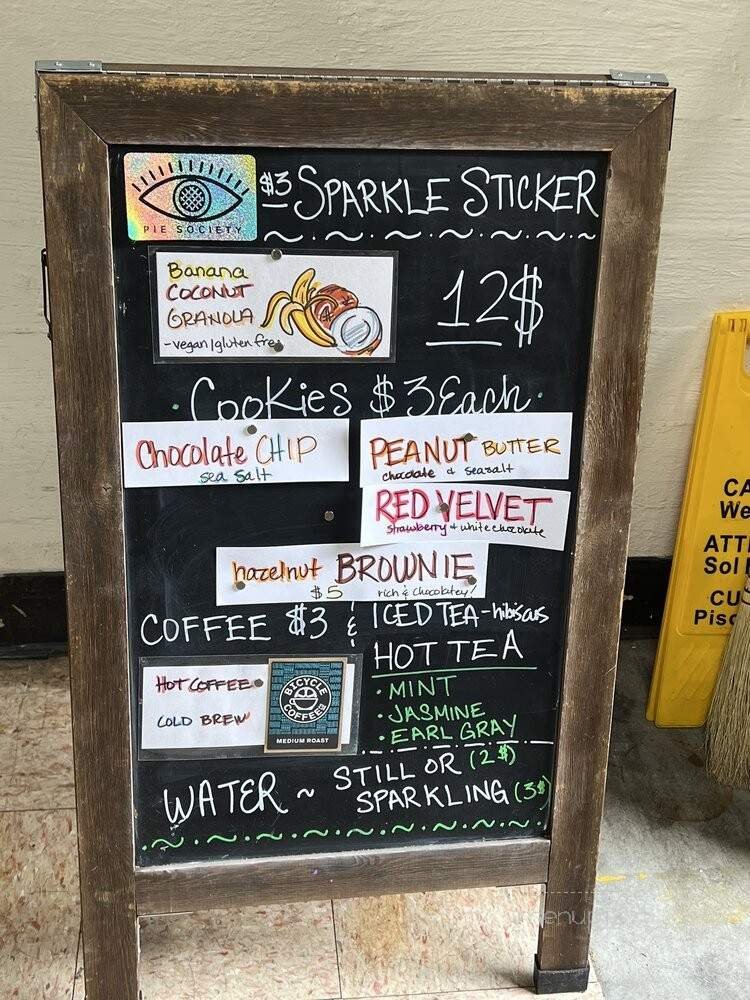 PIE SOCIETY
$3 SPARKLE STICKER
Banana
COCONUT
GRANOLA
-vegan/gluten free
12$
· Cookies $3 Each ·
Chocolate CHIP
sea salt
PEANUT BUTTER
chocolate & seasalt
RED VELVET
strawberry + white chocolate
hazelnut BROWNIE
$5 rich & chocolatey!
COFFEE $3 & ICED TEA - hibiscus
HOT COFFEE
COLD BREW
BICYCLE
COFFEE
MEDIUM ROAST
HOT TEA
· MINT
· JASMINE
· EARL GRAY
WATER ~ STILL OR (2$)
SPARKLING (3$)
CA
We
ATT
Sol
CU
Piso